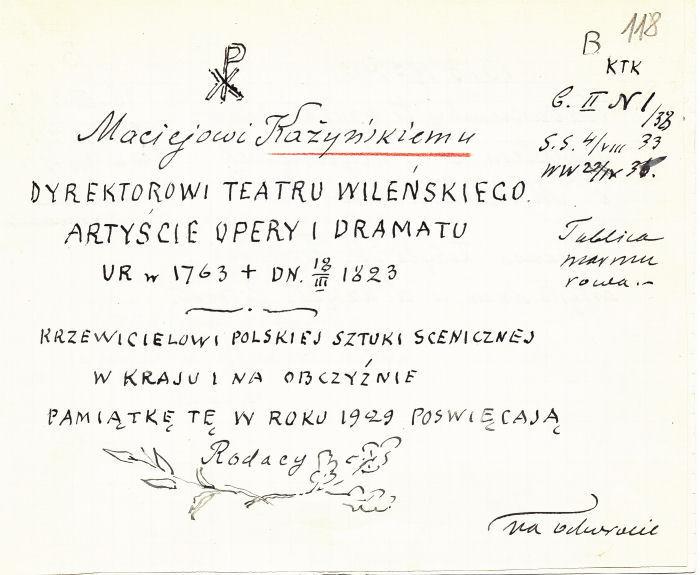 118
B
KTK
G. II N 1/38
S.S. 4/VIII 33
WW 22/IX 35.
Maciejowi Każyńskiemu
DYREKTOROWI TEATRU WILEŃSKIEGO
ARTYŚCIE OPERY I DRAMATU
UR w 1763 + DN. 18/III 1823
KRZEWICIELOWI POLSKIEJ SZTUKI SCENICZNEJ
W KRAJU I NA OBCZYŹNIE
PAMIĄTKĘ TĘ W ROKU 1929 POSWIĘCAJĄ
Rodacy
Tablica
marmu
rowa.-
na odwrocie